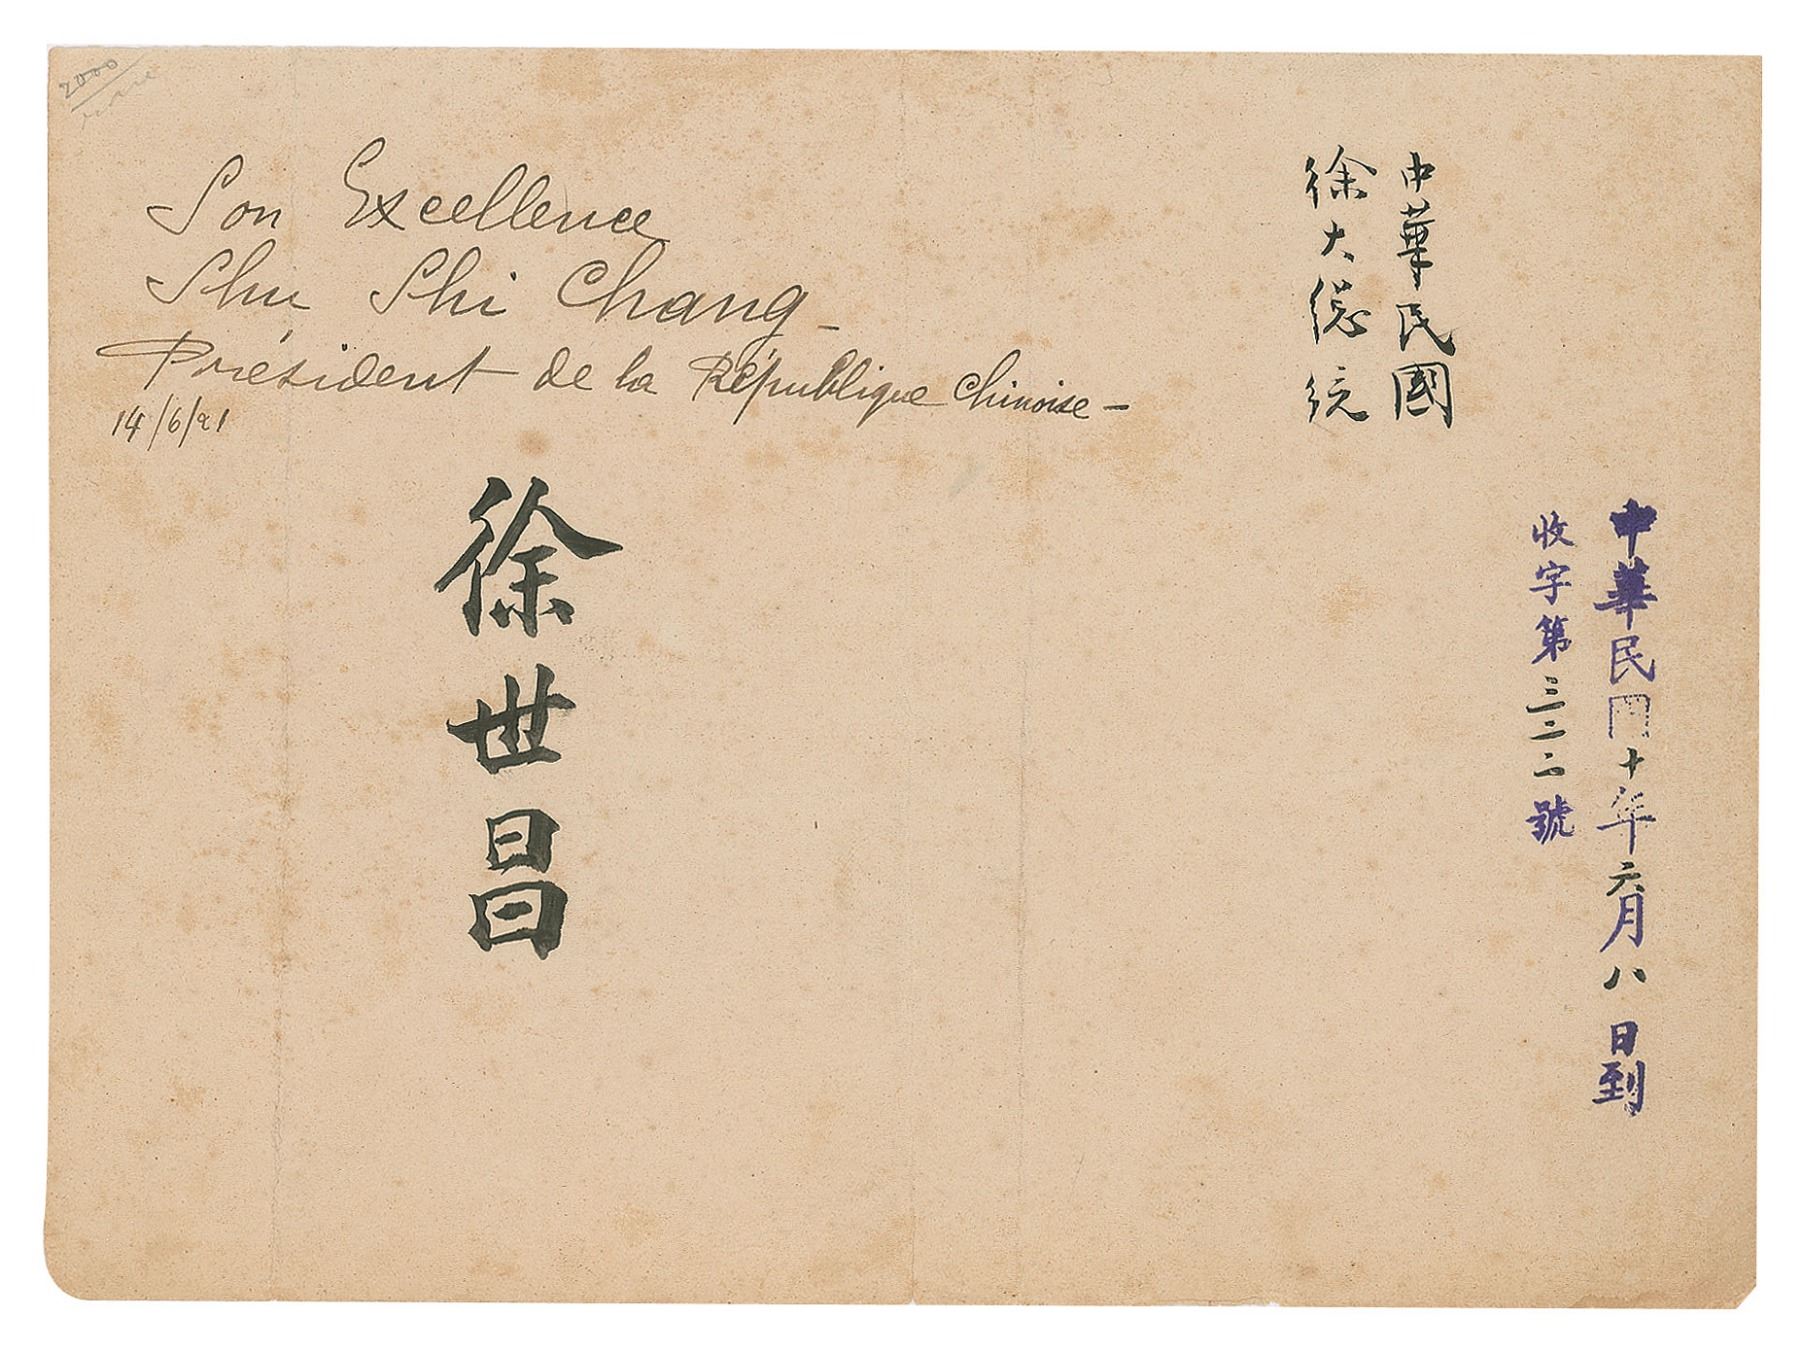 2000
Son Excellence
Shu Shi Chang -
Président de la République Chinoise -
14/6/21
中華民國
徐大總統
徐世昌
中華民國十年六月八日到
收字第三三二號